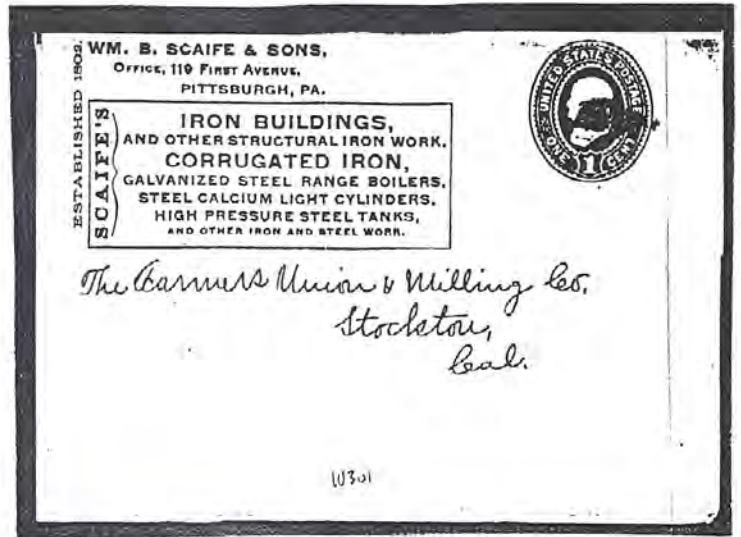 ESTABLISHED 1802.
WM. B. SCAIFE & SONS,
OFFICE, 119 FIRST AVENUE,
PITTSBURGH, PA.
SCAIFE'S
IRON BUILDINGS,
AND OTHER STRUCTURAL IRON WORK.
CORRUGATED IRON,
GALVANIZED STEEL RANGE BOILERS,
STEEL CALCIUM LIGHT CYLINDERS,
HIGH PRESSURE STEEL TANKS,
AND OTHER IRON AND STEEL WORK.
UNITED STATES POSTAGE
ONE 1 CENT
The Farmers Union & Milling Co.
Stockton,
Cal.
10301